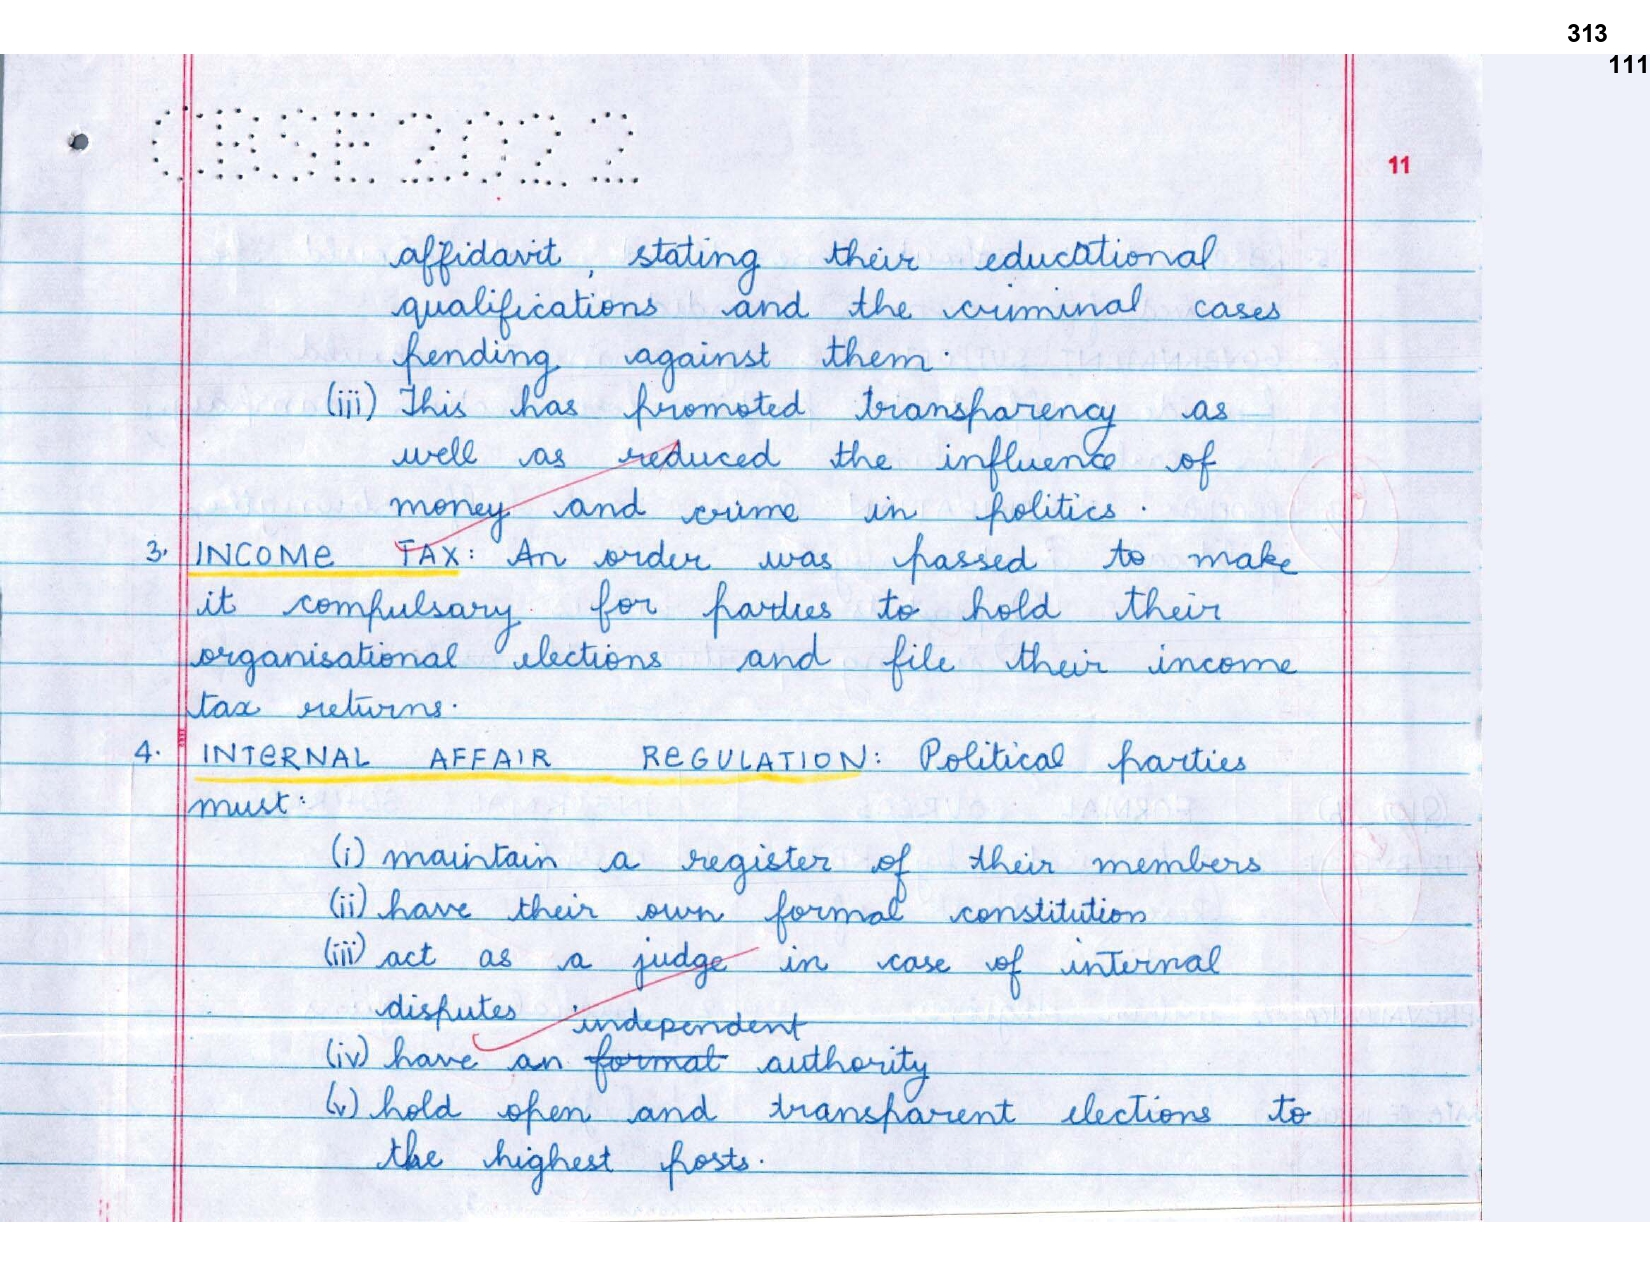 313
111
CBSE2022
11
affidavit, stating their educational
qualifications and the criminal cases
pending against them.
(iii) This has promoted transparency as
well as reduced the influence of
money and crime in politics.
3. INCOME TAX: An order was passed to make
it compulsary for parties to hold their
organisational elections and file their income
tax returns.
4. INTERNAL AFFAIR REGULATION: Political parties
must:
(i) maintain a register of their members
(ii) have their own formal constitution
(iii) act as a judge in case of internal
disputes
independent
(iv) have an formal authority
(v) hold open and transparent elections to
the highest posts.